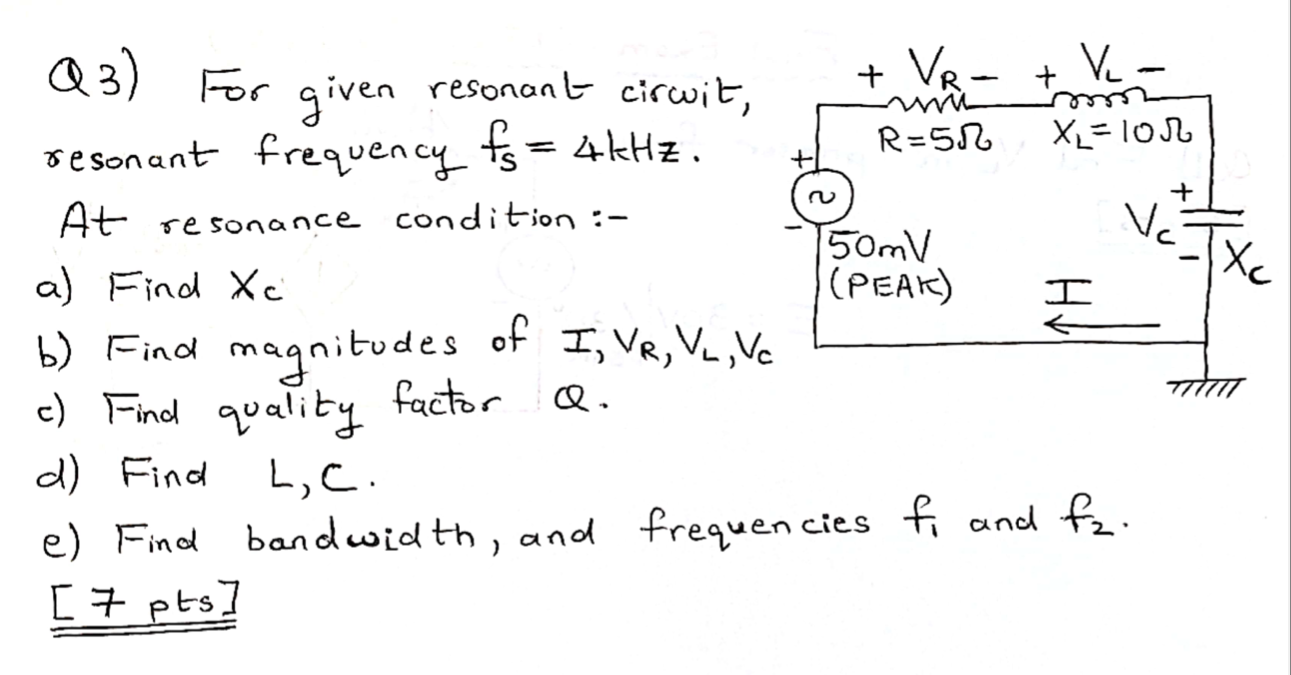 Q3) For given resonant circuit,
resonant frequency fs = 4kHz.
At resonance condition :-
a) Find Xc
b) Find magnitudes of I, VR, VL, Vc
c) Find quality factor Q.
d) Find L, C.
e) Find bandwidth, and frequencies f1 and f2.
[7 pts]
+ VR - + VL -
R=5Ω XL=10Ω
+
~
-
50mV
(PEAK)
+
Vc
-
Xc
I